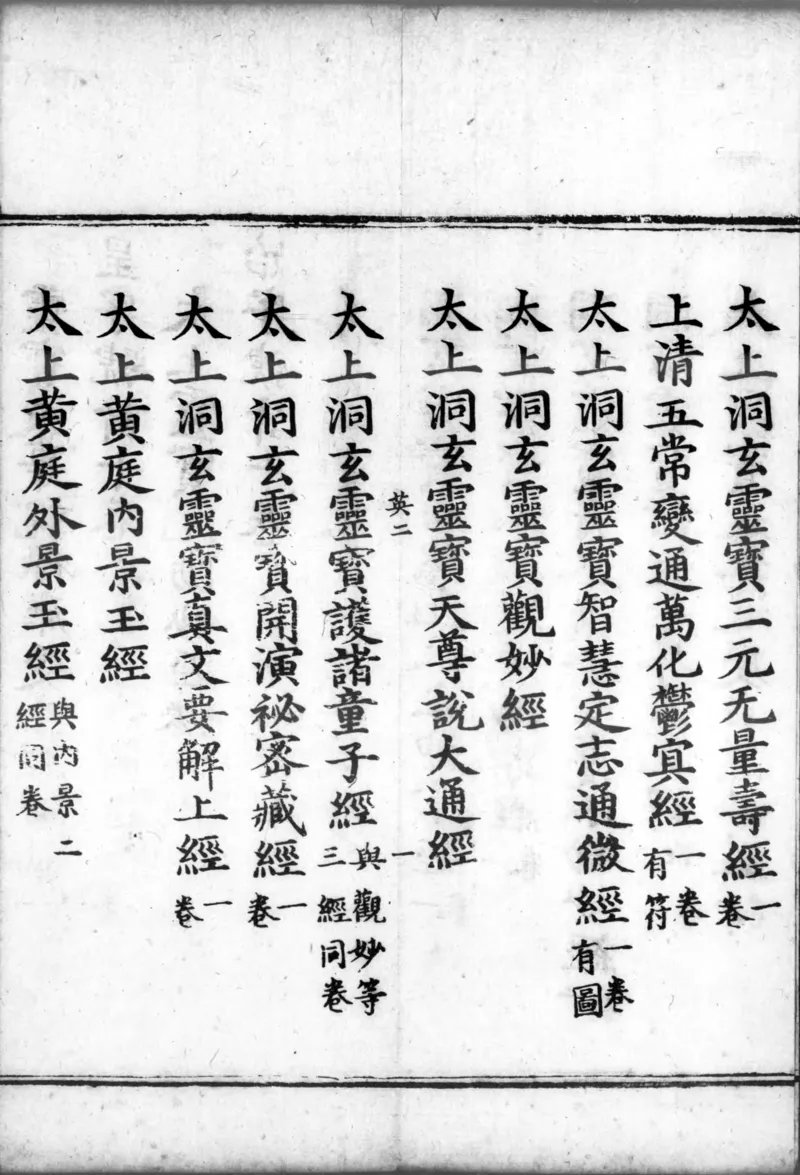 太上洞玄靈寶三元无量壽經一卷
上清五常變通萬化鬱冥經一卷有符
太上洞玄靈寶智慧定志通微經一卷有圖
太上洞玄靈寶觀妙經
太上洞玄靈寶天尊說大通經
英二 一
太上洞玄靈寶護諸童子經與觀妙等三經同卷
太上洞玄靈寶開演祕密藏經一卷
太上洞玄靈寶真文要解上經一卷
太上黃庭內景玉經
太上黃庭外景玉經與內景二經同卷